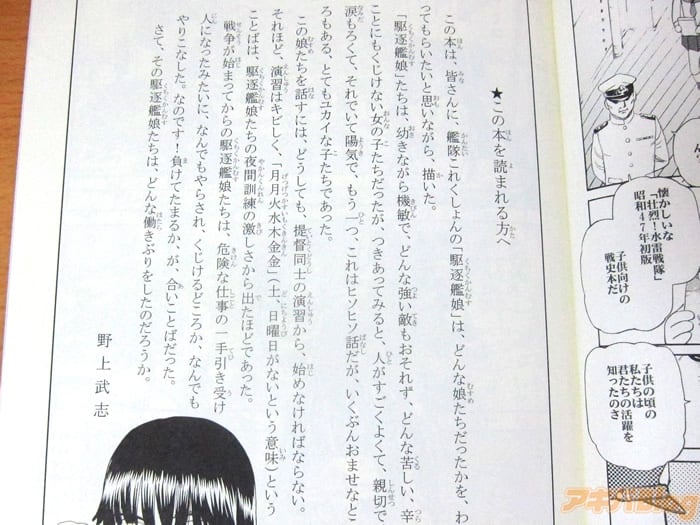 懐かしいな
「壮烈！水雷戦隊」
昭和47年初版
子供向けの
戦史本だ
子供の頃の
私たちは
君たちの活躍を
知ったのさ
★この本を読まれる方へ
この本は、皆さんに、艦隊これくしょんの「駆逐艦娘」は、どんな娘たちだったかを、わ
ってもらいたいと思いながら、描いた。
「駆逐艦娘」たちは、幼きながら機敏で、どんな強い敵もおそれず、どんな苦しい、辛
ことにもくじけない女の子たちだったが、つきあってみると、人がすごくよくて、親切で
涙もろくて、それでいて陽気で、もう一つ、これはヒソヒソ話だが、いくぶんおませなと
ろもある、とてもユカイな子たちであった。
この娘たちを話すには、どうしても、提督同士の演習から、始めなければならない。
それほど、演習はキビしく、「月月火水木金金」（土、日曜日がないという意味）という
ことばは、駆逐艦娘たちの夜間訓練の激しさから出たほどであった。
戦争が始まってからの駆逐艦娘たちは、危険な仕事の一手引き受け
人になったみたいに、なんでもやらされ、くじけるどころか、なんでも
やりこなした。なのです！負けてたまるか、が、合いことばだった。
さて、その駆逐艦娘たちは、どんな働きぶりをしたのだろうか。
野上武志